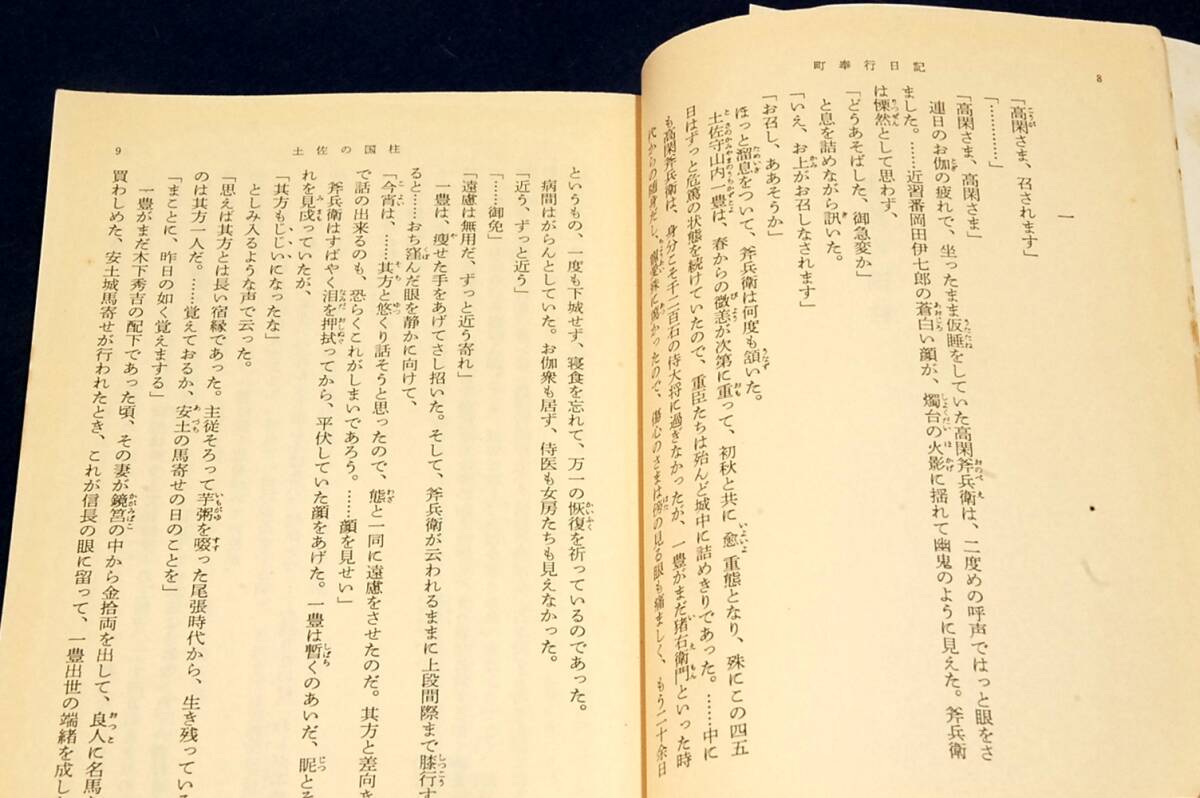 町奉行日記
8
一
「高閑さま、召されます」
「…………」
「高閑さま、高閑さま」
連日のお伽の疲れで、坐ったまま仮睡をしていた高閑斧兵衛は、二度めの呼声ではっと眼をさ
ました。……近習番岡田伊七郎の蒼白い顔が、燭台の火影に揺れて幽鬼のように見えた。斧兵衛
は慄然として思わず、
「どうあそばした、御急変か」
と息を詰めながら訊いた。
「いえ、お上がお召しなされます」
「お召し、ああそうか」
ほっと溜息をついて、斧兵衛は何度も頷いた。
土佐守山内一豊は、春からの微恙が次第に重って、初秋と共に愈重態となり、殊にこの四五
日はずっと危篤の状態を続けていたので、重臣たちは殆んど城中に詰めきりであった。……中に
も高閑斧兵衛は、身分こそ千二百石の侍大将に過ぎなかったが、一豊がまだ猪右衛門といった時
代からの随身だし、寵愛殊に篤かったので、傷心のさまは傍の見る眼も痛ましく、もう二十余日
土佐の国柱
9
というもの、一度も下城せず、寝食を忘れて、万一の恢復を祈っているのであった。
病間はがらんとしていた。お伽衆も居ず、侍医も女房たちも見えなかった。
「近う、ずっと近う」
「……御免」
「遠慮は無用だ、ずっと近う寄れ」
一豊は、痩せた手をあげてさし招いた。そして、斧兵衛が云われるままに上段間際まで膝行す
ると……おち窪んだ眼を静かに向けて、
「今宵は、……其方と悠くり話そうと思ったので、態と一同に遠慮をさせたのだ。其方と差向き
で話の出来るのも、恐らくこれがしまいであろう。……顔を見せい」
斧兵衛はすばやく泪を押拭ってから、平伏していた顔をあげた。一豊は暫くのあいだ、眤とそ
れを見戍っていたが、
「其方もじじいになったな」
としみ入るような声で云った。
「思えば其方とは長い宿縁であった。主従そろって芋粥を啜った尾張時代から、生き残っている
のは其方一人だ。……覚えておるか、安土の馬寄せの日のことを」
「まことに、昨日の如く覚えまする」
一豊がまだ木下秀吉の配下であった頃、その妻が鏡筥の中から金拾両を出して、良人に名馬
買わしめた、安土城馬寄せが行われたとき、これが信長の眼に留って、一豊出世の端緒を成し